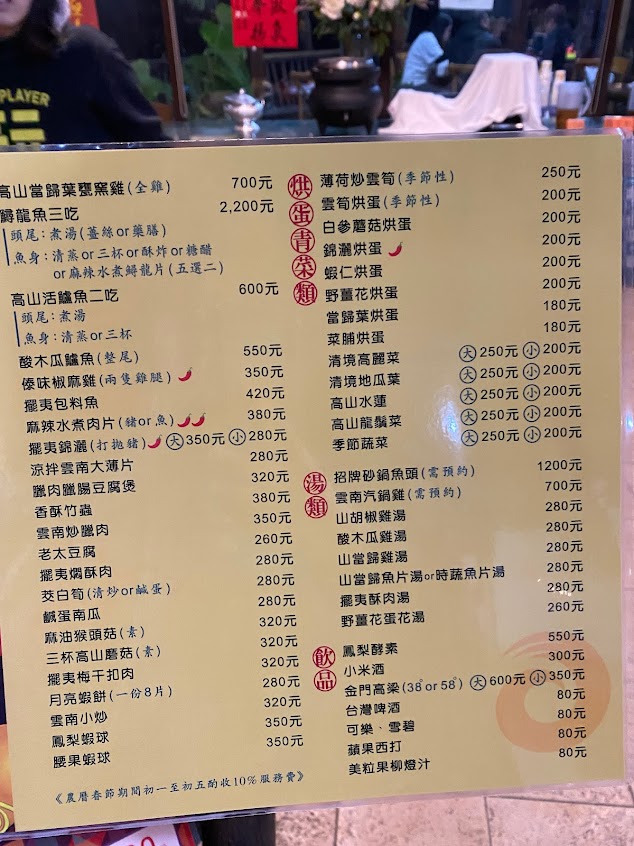 PLAYER
高山當歸葉甕窯雞(全雞) 700元
鱘龍魚三吃 2,200元
頭尾:煮湯(薑絲or藥膳)
魚身:清蒸or三杯or酥炸or糖醋
or麻辣水煮鱘龍片(五選二)
高山活鱸魚二吃 600元
頭尾:煮湯
魚身:清蒸or三杯
酸木瓜鱸魚(整尾) 550元
傣味椒麻雞(兩隻雞腿) 350元
擺夷包料魚 420元
麻辣水煮肉片(豬or魚) 380元
擺夷錦灑(打拋豬) 大350元 小280元
涼拌雲南大薄片 280元
臘肉臘腸豆腐煲 320元
香酥竹蟲 380元
雲南炒臘肉 350元
老太豆腐 260元
擺夷燜酥肉 280元
茭白筍(清炒or鹹蛋) 280元
鹹蛋南瓜 280元
麻油猴頭菇(素) 320元
三杯高山磨菇(素) 320元
擺夷梅干扣肉 320元
月亮蝦餅(一份8片) 280元
雲南小炒 320元
鳳梨蝦球 350元
腰果蝦球 350元
《農曆春節期間初一至初五酌收10%服務費》
烘蛋青菜類
薄荷炒雲筍(季節性) 250元
雲筍烘蛋(季節性) 200元
白參蘑菇烘蛋 200元
錦灑烘蛋 200元
蝦仁烘蛋 200元
野薑花烘蛋 200元
當歸葉烘蛋 180元
菜脯烘蛋 180元
清境高麗菜 大250元 小200元
清境地瓜葉 大250元 小200元
高山水蓮 大250元 小200元
高山龍鬚菜 大250元 小200元
季節蔬菜 大250元 小200元
湯類
招牌砂鍋魚頭(需預約) 1200元
雲南汽鍋雞(需預約) 700元
山胡椒雞湯 280元
酸木瓜雞湯 280元
山當歸雞湯 280元
山當歸魚片湯or時蔬魚片湯 280元
擺夷酥肉湯 280元
野薑花蛋花湯 260元
飲品
鳳梨酵素 550元
小米酒 300元
金門高梁(38°or 58°) 大600元 小350元
台灣啤酒 80元
可樂、雪碧 80元
蘋果西打 80元
美粒果柳橙汁 80元